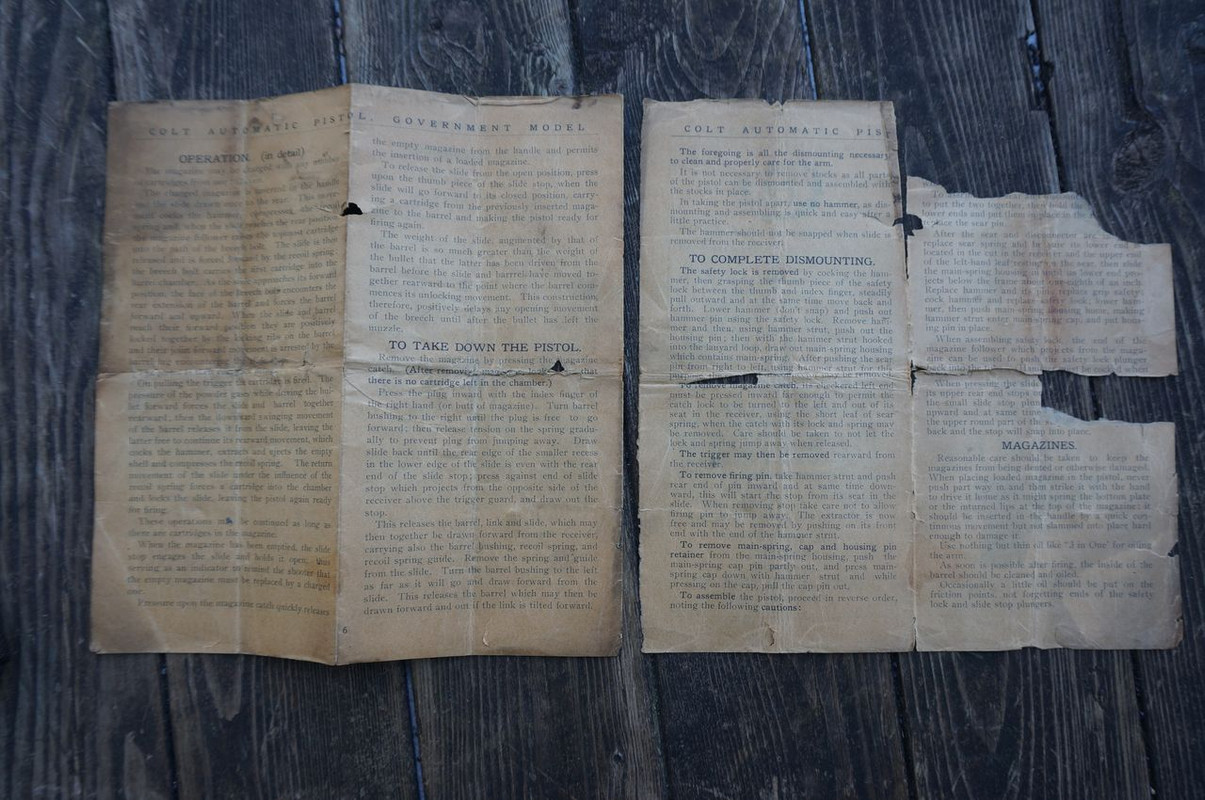 COLT AUTOMATIC PISTOL. GOVERNMENT MODEL
OPERATION. (in detail)
The magazine may be charged
cartridges from
released and is forced forward by the recoil spring
the breech bolt
barrel chamber. As the
position, the face of the breech bolt encounters the
rear extension of the barrel and forces the barrel
forward and upward. When the slide and barrel
reach their forward position they are positively
locked together by the locking ribs on the barrel
and their joint forward movement is arrested by the
On pulling the trigger the cartridge is fired. The
pressure of the powder gases while driving the bul-
let forward forces the slide and barrel together
rearward, then the downward swinging movement
of the barrel releases it from the slide, leaving the
latter free to continue its rearward movement, which
cocks the hammer, extracts and ejects the empty
shell and compresses the recoil spring. The return
movement of the slide under the influence of the
recoil spring forces a cartridge into the chamber
and locks the slide, leaving the pistol again ready
for firing.
These operations may be continued as long as
there are cartridges in the magazine.
When the magazine has been emptied, the slide
stop engages the slide and holds it open, thus
serving as an indicator to remind the shooter that
the empty magazine must be replaced by a charged
one.
Pressure upon the magazine catch quickly releases
the empty magazine from the handle and permits
the insertion of a loaded magazine.
To release the slide from the open position, press
upon the thumb piece of the slide stop, when the
slide will go forward to its closed position, carry-
ing a cartridge from the previously inserted maga-
zine to the barrel and making the pistol ready for
firing again.
The weight of the slide, augmented by that of
the barrel is so much greater than the weight of
the bullet that the latter has been driven from the
barrel before the slide and barrel have moved to-
gether rearward to the point where the barrel com-
mences its unlocking movement. This construction,
therefore, positively delays any opening movement
of the breech until after the bullet has left the
muzzle.
TO TAKE DOWN THE PISTOL.
Remove the magazine by pressing the magazine
catch. (After removing that
there is no cartridge left in the chamber.)
Press the plug inward with the index finger of
the right hand (or butt of magazine). Turn barrel
bushing to the right until the plug is free to go
forward; then release tension on the spring gradu-
ally to prevent plug from jumping away. Draw
slide back until the rear edge of the smaller recess
in the lower edge of the slide is even with the rear
end of the slide stop; press against end of slide
stop which projects from the opposite side of the
receiver above the trigger guard, and draw out the
stop.
This releases the barrel, link and slide, which may
then together be drawn forward from the receiver,
carrying also the barrel bushing, recoil spring, and
recoil spring guide. Remove the spring and guide
from the slide. Turn the barrel bushing to the left
as far as it will go and draw forward from the
slide. This releases the barrel which may then be
drawn forward and out if the link is tilted forward.
6
COLT AUTOMATIC PIST
The foregoing is all the dismounting necessary
to clean and properly care for the arm.
It is not necessary to remove stocks as all parts
of the pistol can be dismounted and assembled with
the stocks in place.
In taking the pistol apart, use no hammer, as dis-
mounting and assembling is quick and easy after a
little practice.
The hammer should not be snapped when slide is
removed from the receiver.
TO COMPLETE DISMOUNTING.
The safety lock is removed by cocking the ham-
mer, then grasping the thumb piece of the safety
lock between the thumb and index finger, steadily
pull outward and at the same time move back and
forth. Lower hammer (don't snap) and push out
hammer pin using the safety lock. Remove ham-
mer and then, using hammer strut, push out the
housing pin; then with the hammer strut hooked
into the lanyard loop, draw out main-spring housing
which contains main-spring. After pushing the sear
pin from right to left, using hammer strut for this
To remove magazine catch, its checkered left end
must be pressed inward far enough to permit the
catch lock to be turned to the left and out of its
seat in the receiver, using the short leaf of sear
spring, when the catch with its lock and spring may
be removed. Care should be taken to not let the
lock and spring jump away when released.
The trigger may then be removed rearward from
the receiver.
To remove firing pin, take hammer strut and push
rear end of pin inward and at same time down-
ward, this will start the stop from its seat in the
slide. When removing stop take care not to allow
firing pin to jump away. The extractor, is now
free and may be removed by pushing on its front
end with the end of the hammer strut.
To remove main-spring, cap and housing pin
retainer from the main-spring housing, push the
main-spring cap pin partly out, and press main-
spring cap down with hammer strut and while
pressing on the cap, pull the cap pin out.
To assemble the pistol, proceed in reverse order,
noting the following cautions:
to put the two
lower ends and put them
replace the sear pin.
After the sear and disconnector are
replace sear spring and be sure its lower end is
located in the cut in the receiver and the upper end
of the left-hand leaf rests on the sear, then slide
the main-spring housing until its lower end pro-
jects below the frame one-eighth of an inch.
Replace hammer and safety lock, replace grip safety,
cock hammer and replace safety lock, lower ham-
mer, then push main-spring housing home, making
hammer strut enter main-spring cap, and put hous-
ing pin in place.
When assembling safety lock the end of the
magazine follower which projects from the maga-
zine can be used to push the safety lock plunger
When pressing the slide
its upper rear end stops
the small slide stop plun
upward and at same time
the upper round part of the
back and the stop will snap into place.
MAGAZINES.
Reasonable care should be taken to keep the
magazines from being dented or otherwise damaged.
When placing loaded magazine in the pistol, never
insert part way and then strike it with the hand
to drive it home as it might spring the bottom plate
or the returned lips at the top of the magazine. It
should be inserted in the handle by a quick con-
tinuous movement but not slammed into place hard
enough to damage it.
Use nothing but thin oil like "3 in One" for oiling
the arm.
As soon as possible after firing, the inside of the
barrel should be cleaned and oiled.
Occasionally a little oil should be put on the
friction points, not forgetting ends of the safety
lock and slide stop plungers.